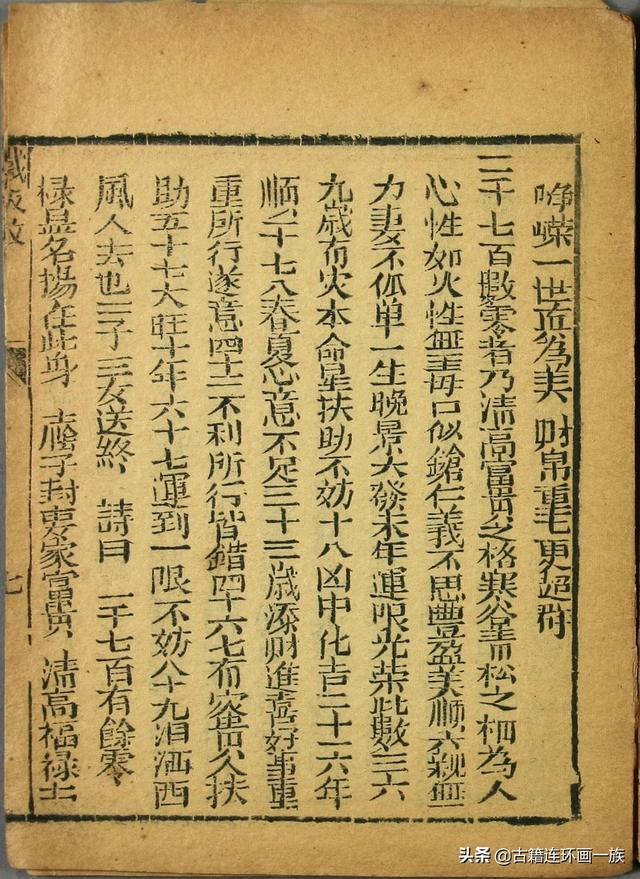 崢嶸一世並為美 財帛重重更超群
二千七百數零者乃清高富貴之格寒谷青松之柏為人
心性如火性無毒口似鎗仁義不思豐盈美順六親無
力妻不孤單一生晚景大發末年運限光榮此數三六
九歲有灾本命星扶助不妨十八凶中化吉二十六年
順二十七八春夏心意不足三十三歲添財進喜好事重
重所行遂意四十二不利所行皆錯四十六七有灾貴人扶
助五十七大旺十年六十七運到一限不妨八十九淚洒西
風人去也三子三女送終 詩曰 一千七百有餘零
禄是名揚在此身 子封妻家富貴 清高福禄
鐵板數
七
头条 @古籍连环画一族